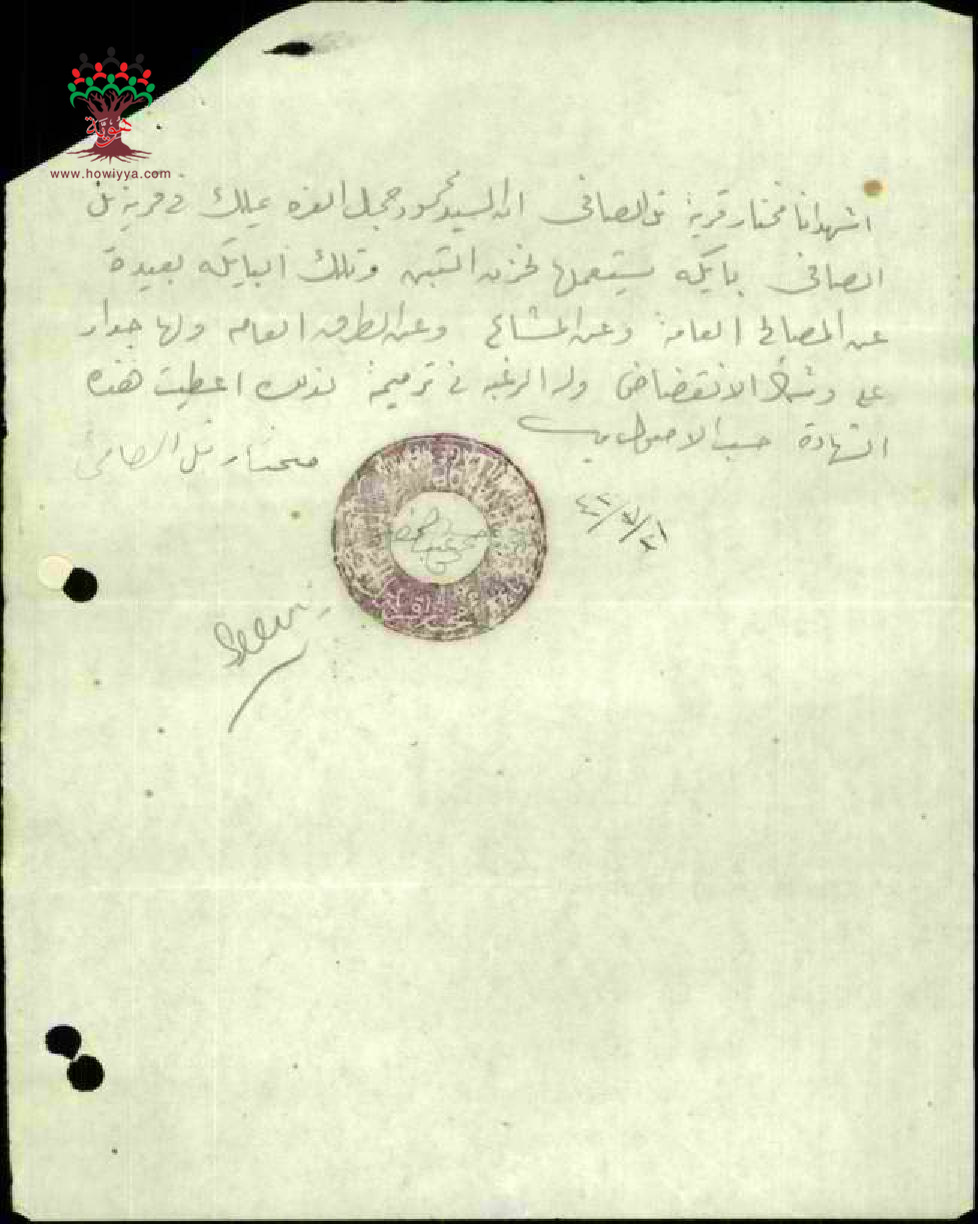 هوية
www.howiyya.com
اشهد انا مختار قرية تل الصافي ان السيد محمود جميل العزه يملك في قرية تل
الصافي بايكه يستعملها لخزن التبن وتلك البايكه بعيدة
عن المصالح العامة وعن المشاع وعن الطرق العامه ولها جدار
على وشك الانقضاض وله الرغبه في ترميمه لذلك اعطيت هذه
الشهادة حسب الاصول
مختار تل الصافي